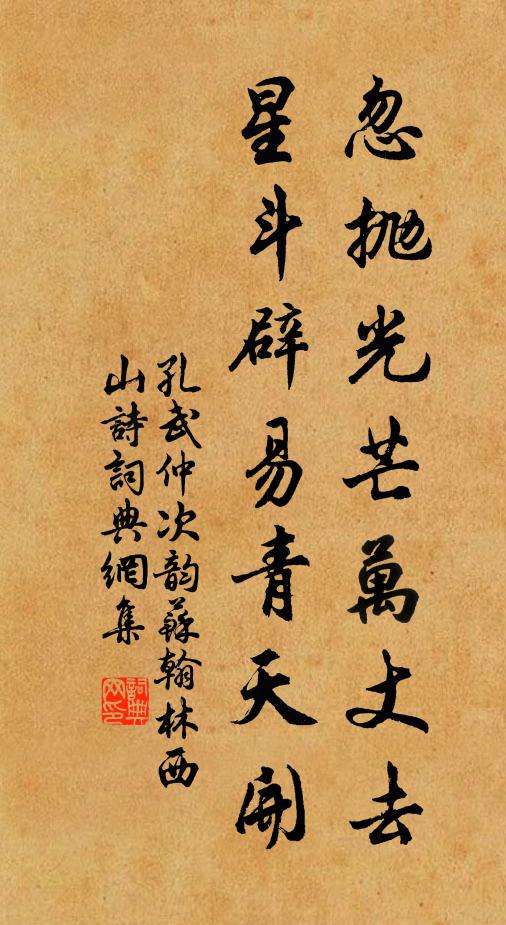 忽拋光芒萬丈去
星斗辟易青天開
孔武仲次韵蘇翰林西
山詩詞典網集
詞典網印